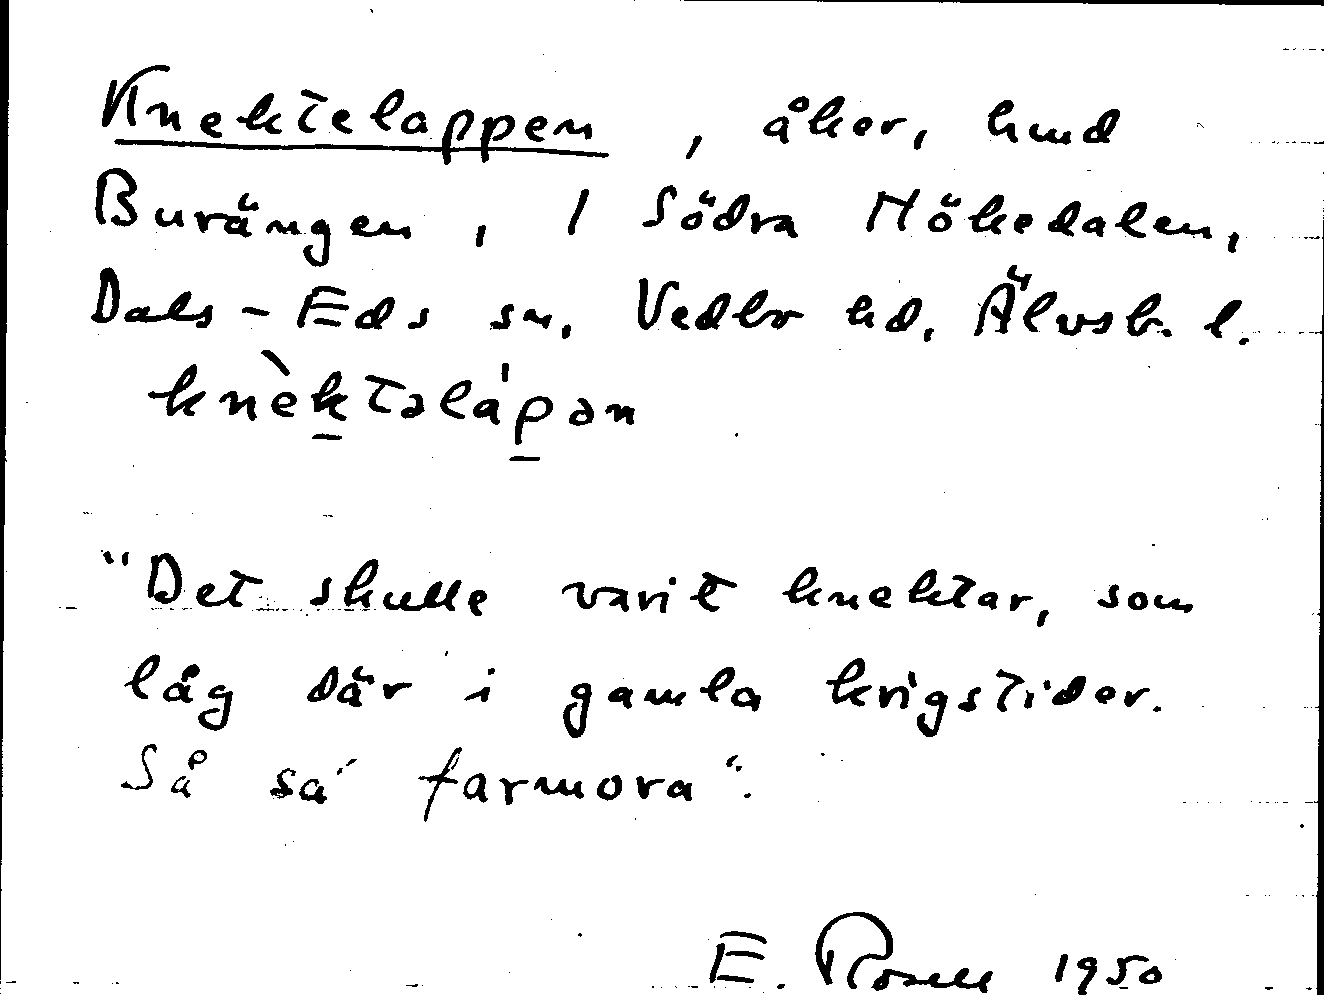 Knektelappen, åker, hmd
Burängen, 1 Södra Hökedalen,
Dals-Eds sn, Vedbo hd, Älvsb. l.
knèktəlápən
"Det skulle varit knektar, som
låg där i gamla krigstider.
Så sa' farmora".
E. Rosell 1950